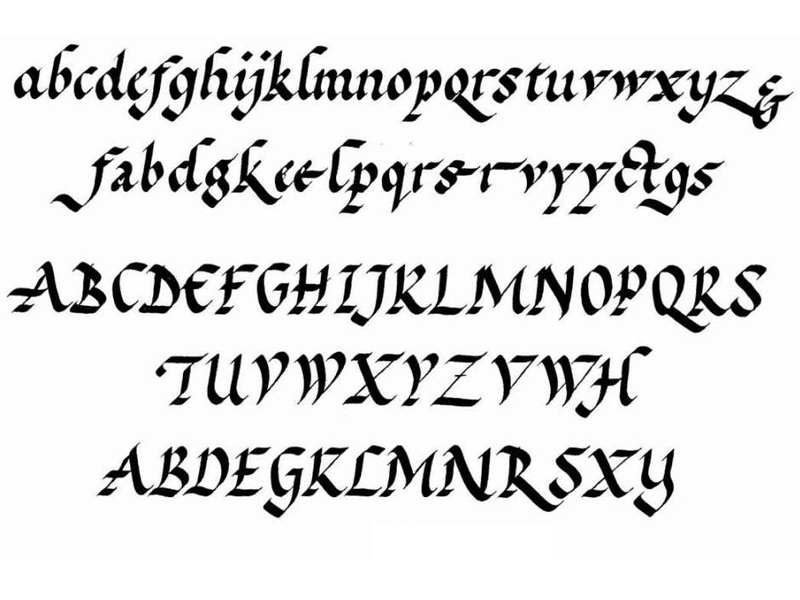 abcdefghijklmnopqrstuvwxyz&
fabdgkeelpqrsrvyyctgs
ABCDEFGHIJKLMNOPQRS
TUVWXYZVWH
ABDEGKLMNRSXY